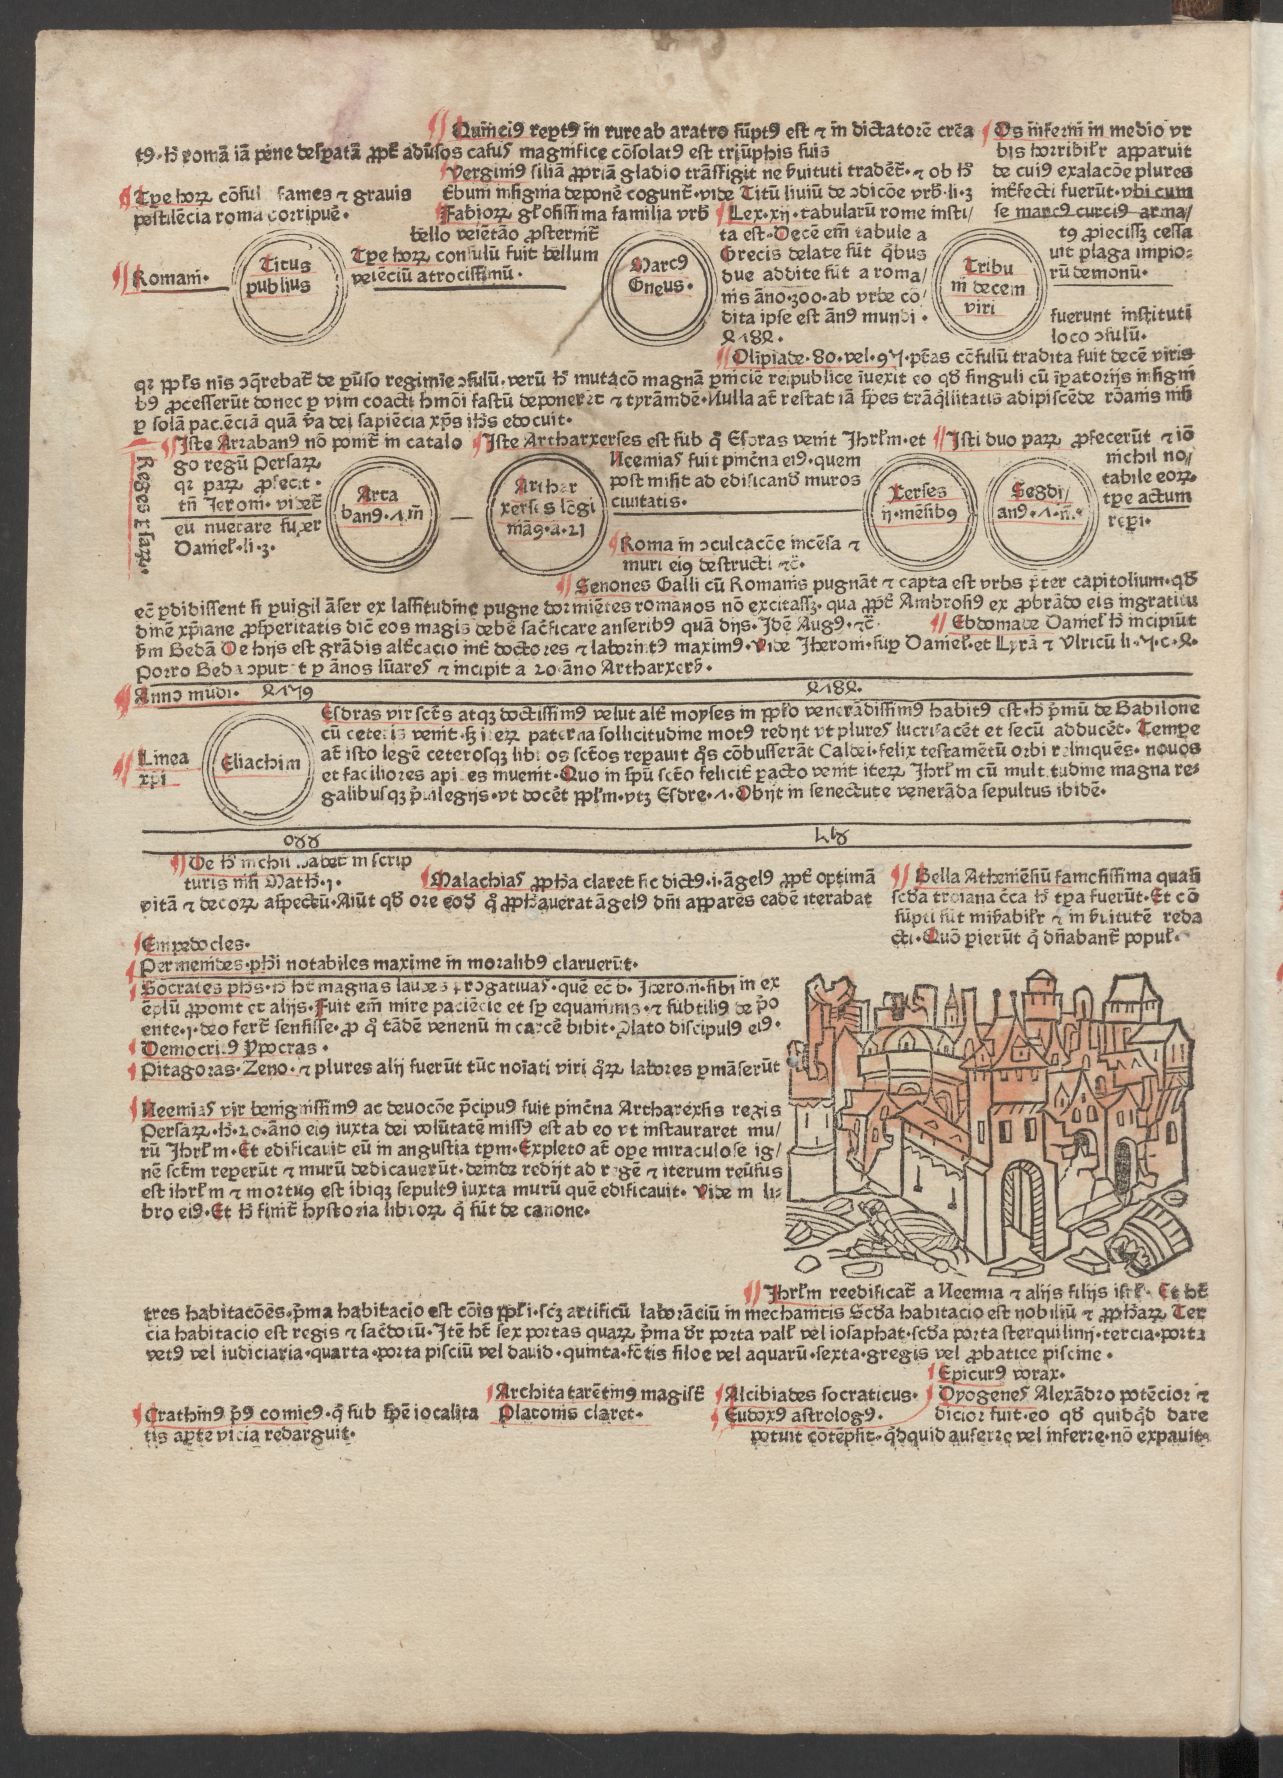 Quinciꝰ reptꝰ in rure ab aratro sūptꝰ est ⁊ in dictatorē crēa
tꝰ. hͦ romā iā pene despatā ꝓpt̄ adūsos casus magnifice cōsolatꝰ est triūphis suis
Verginiꝰ filiā ꝓpriā gladio trāsfigit ne ẜuituti tradēt̄. ⁊ ob hͦ
Ebum insignia deponē cogunt̄. vide Titū liuiū de ↄdicōe vrb̄. li. 3
Tpe hoꝝ cōsul fames ⁊ grauis
pestilēcia roma corripuē.
Fabioꝝ gl'osissima familia vrb̄
bello veiētāo ꝓsternit̄
Tpe hoꝝ consulū fuit bellum
veiēciū atrocissimū.
Romani.
Titus
publius
Marcꝰ
Gneus.
Lex. xij. tabularū rome insti/
ta est. Decē em̄ tabule a
Grecis delate sūt q̄bus
due addite sūt a roma/
nis āno. 300. ab vrbe cō/
dita ipse est ānꝰ mundi.
4184.
Os inferni in medio vr
bis horribil'r apparuit
de cuiꝰ exalacōe plures
int̄fecti fuerūt. vbi cum
se marcꝰ curciꝰ arma/
tꝰ ꝓiecissꝫ cessa
uit plaga impio-
rū demonū.
Tribu
ni decem
viri
fuerunt instituti
loco ↄsulū.
Olīpiade. 80. vel. 97. ptās cōsulū tradita fuit decē viris
qꝛ ppl's nīs ↄq̄rebat̄ de pūso regimīe ↄsulū. verū hͦ mutacō magnā pniciē reipublice īuexit eo qd̄ singuli cū īpatorijs insigni
bꝰ ꝓcesserūt donec p vim coacti hmōi fastū deponeret ⁊ tyrāndē. Nulla at̄ restat iā spes trāq̄llitatis adipiscēde rōanis nisi
p solā paciēciā quā v̄a dei sapiēcia xp̄s ih̄s edocuit.
Reges ꝑsaꝝ.
Iste Arzabanꝰ nō ponit̄ in catalo
go regū Persaꝝ
qꝛ paꝝ ꝓfecit.
tn̄ Jeroni. videt̄
eū nuerare super
Daniel'. li. 3.
Arta
banꝰ. 7. m̄
Iste Artharxerses est sub q̄ Esdras venit Jhrl'm. et
Neemias fuit pincīna eiꝰ. quem
post misit ad edificand̄ muros
ciuitatis.
Arthar
xerses lōgi
māꝰ. a. 21
Roma in ↄculcacōe incēsa ⁊
muri eiꝰ destructi ⁊c̄.
Isti duo paꝝ ꝓfecerūt ⁊ iō
nichil no/
tabile eoꝝ
tpe actum
repi.
Xerses
ij. mēsibꝰ
Segdi/
anꝰ. 7. m̄.
Senones Galli cū Romanis pugnāt ⁊ capta est vrbs p̄ter capitolium. qd̄
ec̄ pdidissent si puigil āser ex lassitudine pugne dormiētes romanos nō excitassꝫ. qua ꝓpt̄ Ambrosiꝰ ex ꝓbrādo eis ingratitu
dinē xp̄iane ꝓsperitatis dic̄ eos magis debē sac̄ficare anseribꝰ quā dijs. Idē Augꝰ. ⁊c̄
Ebdomade Daniel' hͦ incipiūt
s̄m Bedā De hijs est grādis alt̄cacio int̄ doctores ⁊ laborintꝰ maximꝰ. Vide Jherom. sup Daniel'. et Lyrā ⁊ Vlricū li. 7. c. 4.
Porro Beda ↄputat p ānos lūares ⁊ incipit a 20. āno Artharxers̄.
Anno mūdi. 4179
4184.
Linea
xp̄i
Eliachim
Esdras vir sct̄s atqꝫ doctissimꝰ velut alt̄ moyses in ppl'o venerādissimꝰ habitꝰ est. hͦ p̄mū de Babilone
cū ceteris venit. ꝫ iteꝝ paterna sollicitudine motꝰ redijt vt plures lucrifacēt et secū adducēt. Tempe
at̄ isto legē ceterosqꝫ libros sct̄os repauit q̄s cōbusserāt Caldei. felix testamētū orbi relinquēs. nouos
et faciliores apices inuenit. Quo in sp̄u sct̄o felicit̄ pacto venit iteꝝ Jhrl'm cū multitudine magna re-
galibusqꝫ p̄uilegijs. vt docēt ppl'm. vtꝫ Esdre. 7. Obijt in senectute venerāda sepultus ibidē.
De hͦ nichil habet̄ in scrip
turis nisi Math̄. j.
Malachias ꝓph̄a claret sic dictꝰ. i. āgelꝰ ꝓpt̄ optimā
vitā ⁊ decoꝝ aspectū. Aiūt qd̄ ore eod̄ q̄ ꝓph̄auerat āgelꝰ dn̄i apparēs eadē iterabat
Bella Atheniēsiū famosissima quasi
scd̄a troiana c̄ca hͦ tpa fuerūt. Et cō
sūpti sūt mirabil'r ⁊ in ẜuitutē reda
cti. Quō pierūt q̄ dn̄abant̄ popul'.
Empedocles.
Permenides. phī notabiles maxime in moralibꝰ claruerūt.
Socrates ph̄s. hͦ ht̄ magnas laudes prerogatiuas. quē ec̄ b. Jheroni. sibi in ex
ēplū ꝓponit et alijs. Fuit em̄ mire paciēcie et sp equanimis. ⁊ subtilis de p̄o
ente. j. deo fert̄ sensisse. ꝓ q̄ tādē venenū in carcē bibit. Plato discipulꝰ eiꝰ.
Democritꝰ Ypocras.
Pitagoras. Zeno. ⁊ plures alij fuerūt tūc noīati viri q̄ꝝ labores pmāserūt
Neemias vir benignissimꝰ ac deuocōe p̄cipuꝰ fuit pincīna Artharexsis regis
Persaꝝ. hͦ. 20. āno eiꝰ iuxta dei volūtatē missꝰ est ab eo vt instauraret mu/
rū Jhrl'm. Et edificauit eū in angustia tpm. Expleto at̄ ope miraculose ig/
nē sct̄m reperūt ⁊ murū dedicauerūt. deinde redijt ad regē ⁊ iterum reūsus
est ihrl'm ⁊ mortuꝰ est ibiqꝫ sepultꝰ iuxta murū quē edificauit. Vide in li-
bro eiꝰ. Et hͦ finit̄ hystoria libroꝝ q̄ sūt de canone.
Jhrl'm reedificat̄ a Neemia ⁊ alijs filijs isrl'. Et ht̄
tres habitacōēs. p̄ma habitacio est cōis ppl'i. scꝫ artificū laborāciū in mechanicis Scd̄a habitacio est nobiliū ⁊ ꝓph̄aꝝ Ter
cia habitacio est regis ⁊ sac̄dotū. Itē ht̄ sex portas quaꝝ p̄ma dr̄ porta vall' vel iosaphat. scd̄a porta sterquilinij. tercia. porta
vetꝰ vel iudiciaria. quarta. porta pisciū vel dauid. quinta. fōtis siloe vel aquarū. sexta. gregis vel ꝓbatice piscine.
Epicurꝰ vorax.
Archita tarētinꝰ magist̄
Platonis claret.
Alcibiades socraticus.
Eudoxꝰ astrologꝰ.
Dyogenes Alexādro potēcior ⁊
dicior fuit. eo qd̄ quidq̄d dare
potuit cōtēpsit. q̄dquid auferre vel inferre. nō expauit.
Crathinꝰ p̄ꝰ comicꝰ. q̄ sub spē iocalita
tis apte vicia redarguit.